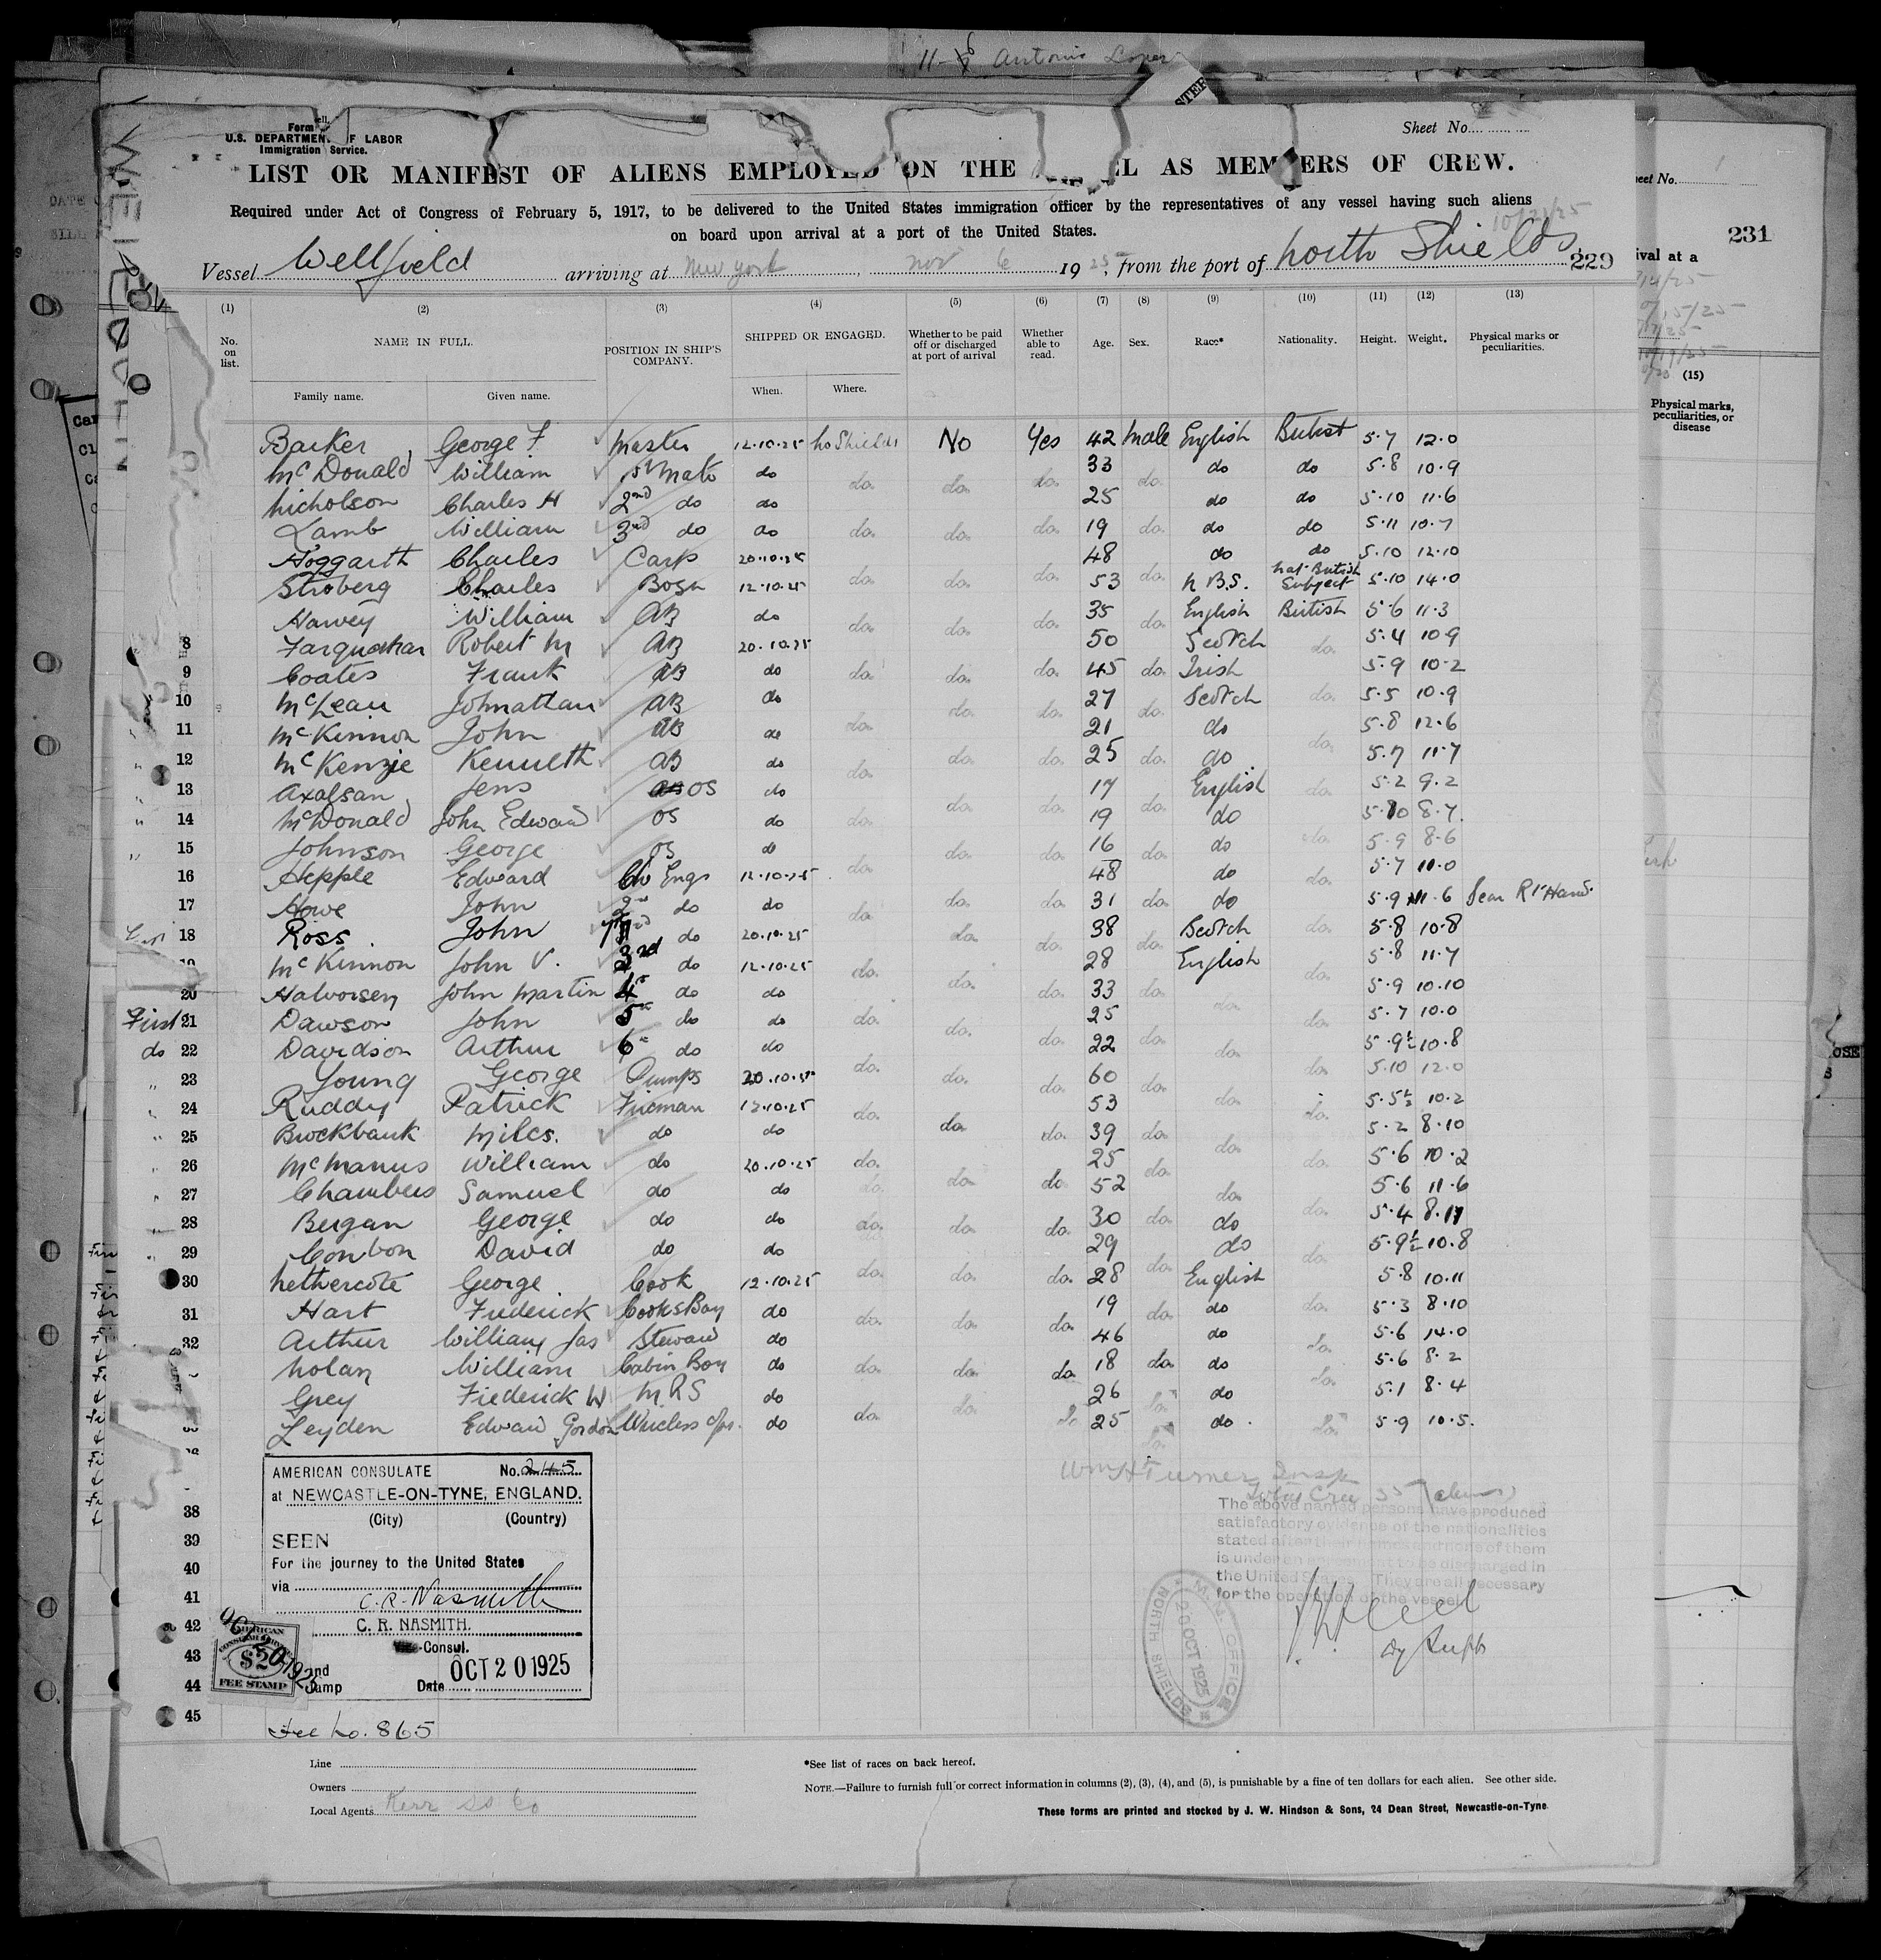 11- Antonio Lopez
Form
U.S. DEPARTMENT OF LABOR
Immigration Service.
Sheet No.
LIST OR MANIFEST OF ALIENS EMPLOYED ON THE EL AS MEMBERS OF CREW.
Required under Act of Congress of February 5, 1917, to be delivered to the United States immigration officer by the representatives of any vessel having such aliens
on board upon arrival at a port of the United States.
10/21/25
Vessel Wellfield arriving at New York, Nov 6 1925, from the port of North Shields 229
(1) (2) (3) (4) (5) (6) (7) (8) (9) (10) (11) (12) (13)
No. on list. NAME IN FULL. POSITION IN SHIP'S COMPANY. SHIPPED OR ENGAGED. Whether to be paid off or discharged at port of arrival Whether able to read. Age. Sex. Race* Nationality. Height. Weight. Physical marks or peculiarities.
Family name. Given name. When. Where.
Barker George F Master 12.10.25 No Shields No Yes 42 Male English British 5.7 12.0
McDonald William 1st Mate do do. do. do. 33 do. do do 5.8 10.9
Nicholson Charles H 2nd do do 25 do do 5.10 11.6
Lamb William 3rd do do do. do. do. 19 do. do do 5.11 10.7
Hoggarth Charles Carp 20.10.25 48 do do 5.10 12.10
Stroberg Charles Bosn 12.10.25 do. do. do. 53 do. N.B.S. Nat. British Subject 5.10 14.0
Harvey William AB do do. do. do. 35 do. English British 5.6 11.3
8 Farquahar Robert M AB 20.10.25 50 Scotch do. 5.4 10.9
9 Coates Frank AB do do. do. do. 45 do. Irish 5.9 10.2
10 McLean Johnathan AB do do. do. 27 do. Scotch do. 5.5 10.9
11 McKinnon John AB do do. 21 do 5.8 12.6
12 McKenzie Kenneth AB do do. do. do. 25 do. do do. 5.7 11.7
13 Axalsan Jens OS do 17 English do. 5.2 9.2
14 McDonald John Edward OS do do. do. do. 19 do. do 5.10 8.7.
15 Johnson George OS do do. do. 16 do. do do. 5.9 8.6
16 Hepple Edward Ch Engr 12.10.25 do. 48 do do. 5.7 11.0
17 Howe John 2nd do do do. do. do. 31 do. do 5.9 11.6 Scar Rt Hand.
18 Ross John do 20.10.25 do. do. 38 do. Scotch 5.8 10.8
19 McKinnon John V. 3rd do 12.10.25 do. 28 English do. 5.8 11.7
20 Halvorsen John Martin 4th do do do. do. 33 do. do. 5.9 10.10
First 21 Dawson John 5th do do do. do. 25 do. 5.7 10.0
do 22 Davidson Arthur 6th do do do. 22 do. do. 5.9½ 10.8
" 23 Young George Pumps 20.10.25 do. do. do. 60 do. do. 5.10 12.0
" 24 Ruddy Patrick Fireman 12.10.25 do. 53 do. do. 5.5½ 10.2
" 25 Brockbank Miles. do do do. do. 39 do. 5.2 8.10
" 26 McManus William do 20.10.25 do. 25 do. do. do. 5.6 10.2
" 27 Chambers Samuel do do do. do. do 52 do. 5.6 11.6
" 28 Bergan George do do do. do. do. 30 do. do do. 5.4 8.11
" 29 Conbon David do do 29 do do. 5.9½ 10.8
30 Nethercote George Cook 12.10.25 do. do. do. 28 do. English 5.8 10.11
31 Hart Frederick Cooks Boy do do. do. do. 19 do. do do. 5.3 8.10
32 Arthur William Jas Steward do 46 do do. 5.6 14.0
Nolan William Cabin Boy do do. do. do. 18 do. do do. 5.6 8.2
Grey Frederick W M.R.S do do. 26 do. do 5.1 8.4
Leyden Edward Gordon Wireless Opr. do do. do 25 do. do. do. 5.9 10.5.
Wm H Turner Insp
Total Crew 35 (aliens)
The above named persons have produced
satisfactory evidence of the nationalities
stated after their names and none of them
is under an agreement to be discharged in
the United States. They are all necessary
for the operation of the vessel.
M.M. OFFICE
20 OCT 1925
NORTH SHIELDS
Dy Supt
AMERICAN CONSULATE No. 245
at NEWCASTLE-ON-TYNE, ENGLAND.
(City) (Country)
SEEN
For the journey to the United States
via
C.R. Nasmith
C. R. NASMITH.
-Consul.
Date OCT 20 1925
OCT 20 1925
AMERICAN
CONSULAR SERVICE
$2
FEE STAMP
38
39
40
41
42
43
44
45
Fee No. 865
Line
Owners
Local Agents Kerr SS Co
*See list of races on back hereof.
NOTE.—Failure to furnish full or correct information in columns (2), (3), (4), and (5), is punishable by a fine of ten dollars for each alien. See other side.
These forms are printed and stocked by J. W. Hindson & Sons, 24 Dean Street, Newcastle-on-Tyne
eet No. 1
231
ival at a
(15)
Physical marks, peculiarities, or disease